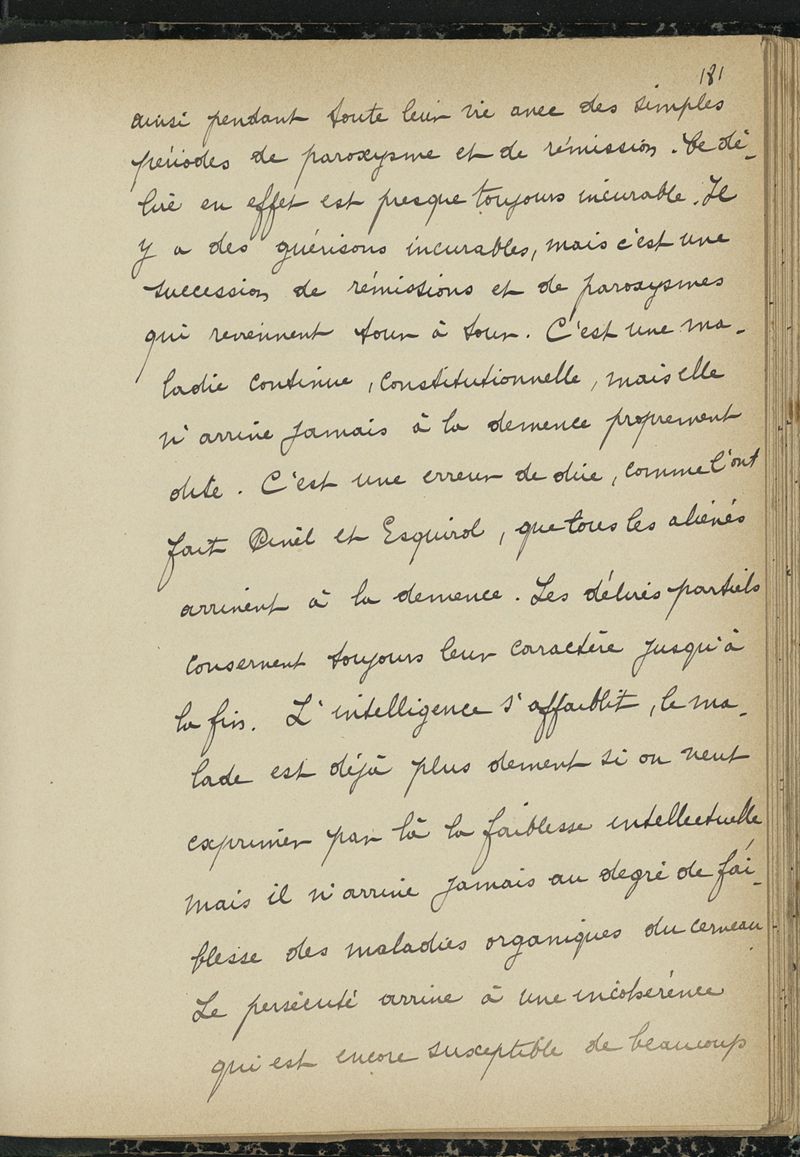 181
ainsi pendant toute leur vie avec des simples
périodes de paroxysme et de rémission. Ce dé-
lire en effet est presque toujours incurable. Il
y a des guérisons incurables, mais c'est une
succession de rémissions et de paroxysmes
qui reviennent tour à tour. C'est une ma-
ladie continue, constitutionnelle, mais elle
n'arrive jamais à la demence proprement
dite. C'est une erreur de dire, comme l'ont
fait Pinel et Esquirol, que tous les aliénés
arrivent à la demence. Les délires partiels
conservent toujours leur caractère jusqu'à
la fin. L'intelligence s'affaiblit, le ma-
lade est déjà plus dement si on veut
exprimer par là la faiblesse intellectuelle
mais il n'arrive jamais au degré de fai-
blesse des maladies organiques du cerveau
Le persécuté arrive à une incohérence
qui est encore susceptible de beaucoup